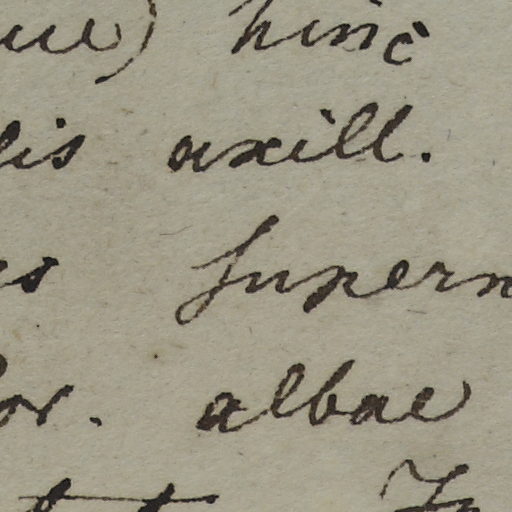 ue) hinc
lis axill.
es supern
or. albae